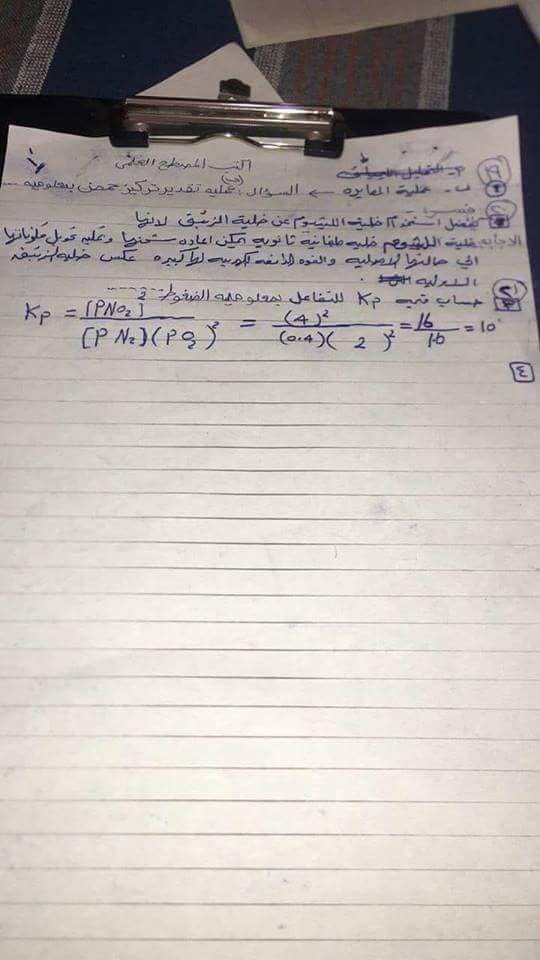 اكتب المصطلح العلمى
١ أ- التحليل
ب- عملية المعايرة ← السؤال: (ب) عملية تقدير تركيز حمض بمعلومية ....
٢ يفضل استخدام خلية الليثيوم عن خلية الزئبق لانها
الاجابه خلية الليثيوم خلية جلفانية ثانوية يمكن إعاده شحنها وعليه تحويل مكوناتها
الي حالتها الأصلية والقوه الدافعة الكهربيه لها كبيره عكس خليه الزئبق
الاولية
٣ حساب قيمه Kp للتفاعل بمعلوميه الضغوط ------
Kp = [PNO₂]² / [P N₂](PO₂)² = (4)² / (0.4)(2)² = 16 / 1.6 = 10
٤